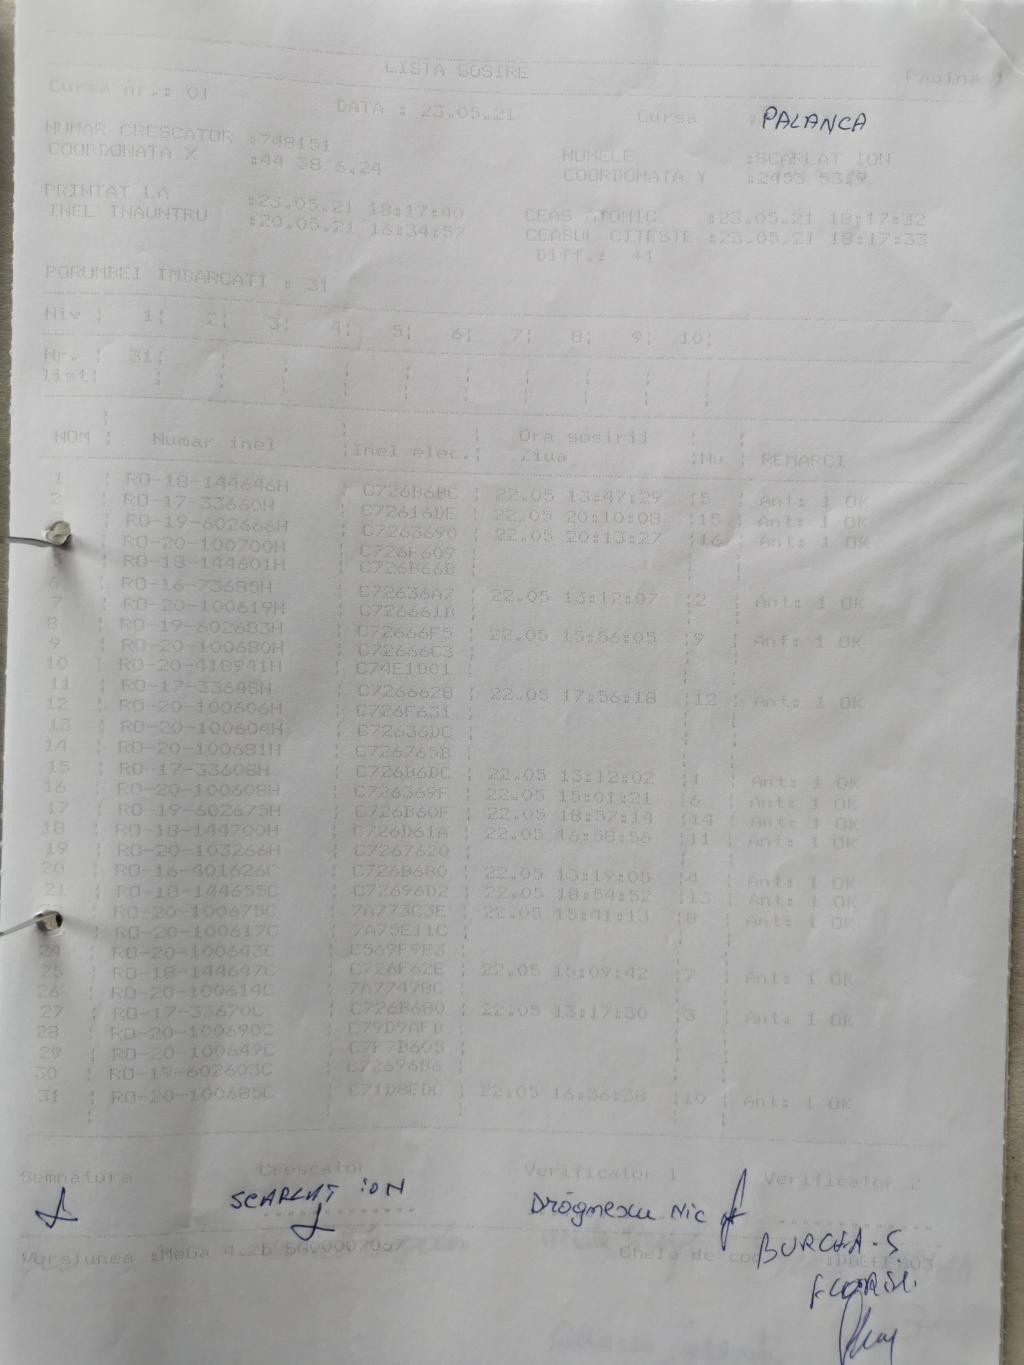 LISTA SOSIRE
Pagina 1
Cursa nr.: 01 DATA : 23.05.21 Cursa :PALANCA
NUMAR CRESCATOR :748151 NUMELE :SCARLAT ION
COORDONATA X :44 38 6.24 COORDONATA Y :2453 53.9
PRINTAT LA :23.05.21 18:17:40 CEAS ATOMIC :23.05.21 18:17:32
INEL INAUNTRU :20.05.21 16:34:57 CEASUL CITESTE :23.05.21 18:17:33
Diff.: +1
PORUMBEI IMBARCATI : 31
Niv | 1| 2| 3| 4| 5| 6| 7| 8| 9| 10|
Nr. | 31|
list|
NOM | Numar inel |Inel elec.| Ora sosirii Ziua |Nu | REMARCI
1 | RO-18-144646H | C726B6BC | 22.05 13:47:29 |5 | Ant: 1 OK
2 | RO-17-33660H | C72616DE | 22.05 20:10:08 |15 | Ant: 1 OK
RO-19-602666H | C7263690 | 22.05 20:13:27 |16 | Ant: 1 OK
RO-20-100700H | C726F609
5 | RO-18-144601H | C726B66B
6 | RO-16-73685H | C72636A7 | 22.05 13:12:07 |2 | Ant: 1 OK
7 | RO-20-100619H | C726661B
8 | RO-19-602683H | C72666F5 | 22.05 15:56:05 |9 | Ant: 1 OK
9 | RO-20-100680H | C72666C3
10 | RO-20-418941H | C74E1D01
11 | RO-17-33648H | C7266628 | 22.05 17:56:18 |12 | Ant: 1 OK
12 | RO-20-100606H | C726F631
13 | RO-20-100604H | C72636DC
14 | RO-20-100681H | C726765B
15 | RO-17-33608H | C726B6DC | 22.05 13:12:02 |1 | Ant: 1 OK
16 | RO-20-100608H | C726369F | 22.05 15:01:21 |6 | Ant: 1 OK
17 | RO-19-602675H | C726B60F | 22.05 18:57:14 |14 | Ant: 1 OK
18 | RO-18-144700H | C726D61A | 22.05 16:58:56 |11 | Ant: 1 OK
19 | RO-20-103266H | C7267620
20 | RO-16-401626C | C726B6B0 | 22.05 13:19:05 |4 | Ant: 1 OK
21 | RO-18-144655C | C72696D2 | 22.05 18:54:52 |13 | Ant: 1 OK
RO-20-100675C | 7A773C3E | 22.05 15:41:13 |8 | Ant: 1 OK
RO-20-100617C | 7A75E11C
24 | RO-20-100643C | C569F9E3
25 | RO-18-144647C | C726F62E | 22.05 15:09:42 |7 | Ant: 1 OK
26 | RO-20-100614C | 7A77498C
27 | RO-17-33670C | C726B680 | 22.05 13:17:30 |3 | Ant: 1 OK
28 | RO-20-100690C | C79D9AFB
29 | RO-20-100649C | C7F7B605
30 | RO-19-602603C | C72696B6
31 | RO-20-100685C | C71D8EDC | 22.05 16:36:38 |10 | Ant: 1 OK
Semnatura Crescator Verificator 1 Verificator 2
SCARLAT ION Drógnescu Nic
Versiunea :Mega 4.2b Cheie de
BURCEA-S